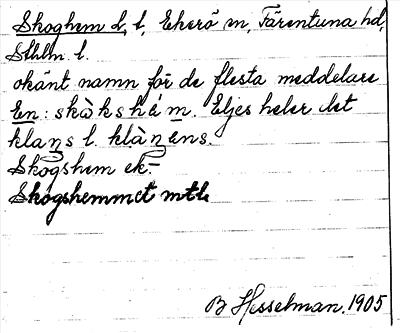 Skoghem l, t, Ekerö sn, Färentuna hd,
Sthlm l.
okänt namn för de flesta meddelare
En: skàkshèm. Eljes heter det
klans l. klànens.
Skogshem ek.
Skogshemmet mtl
B Hesselman. 1905